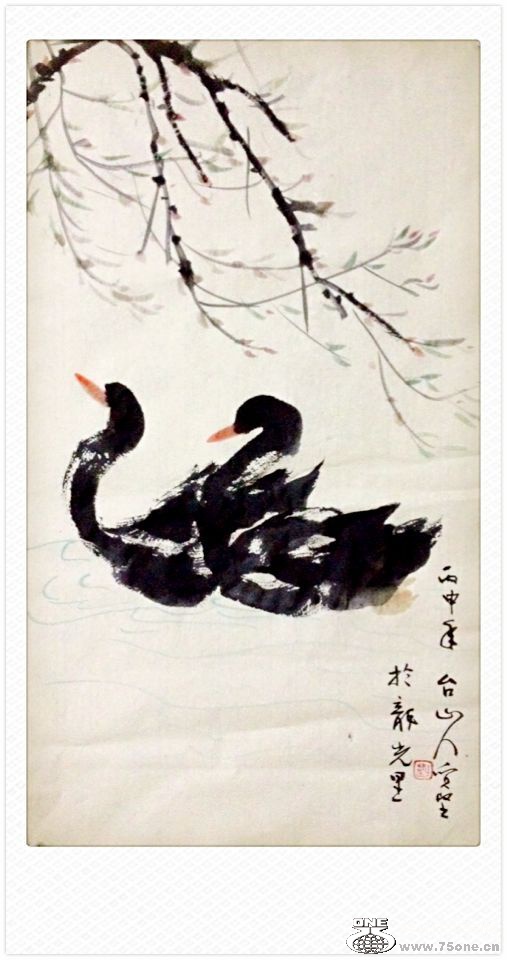 丙申年 台山人
於龍光里
ONE
www.75one.cn